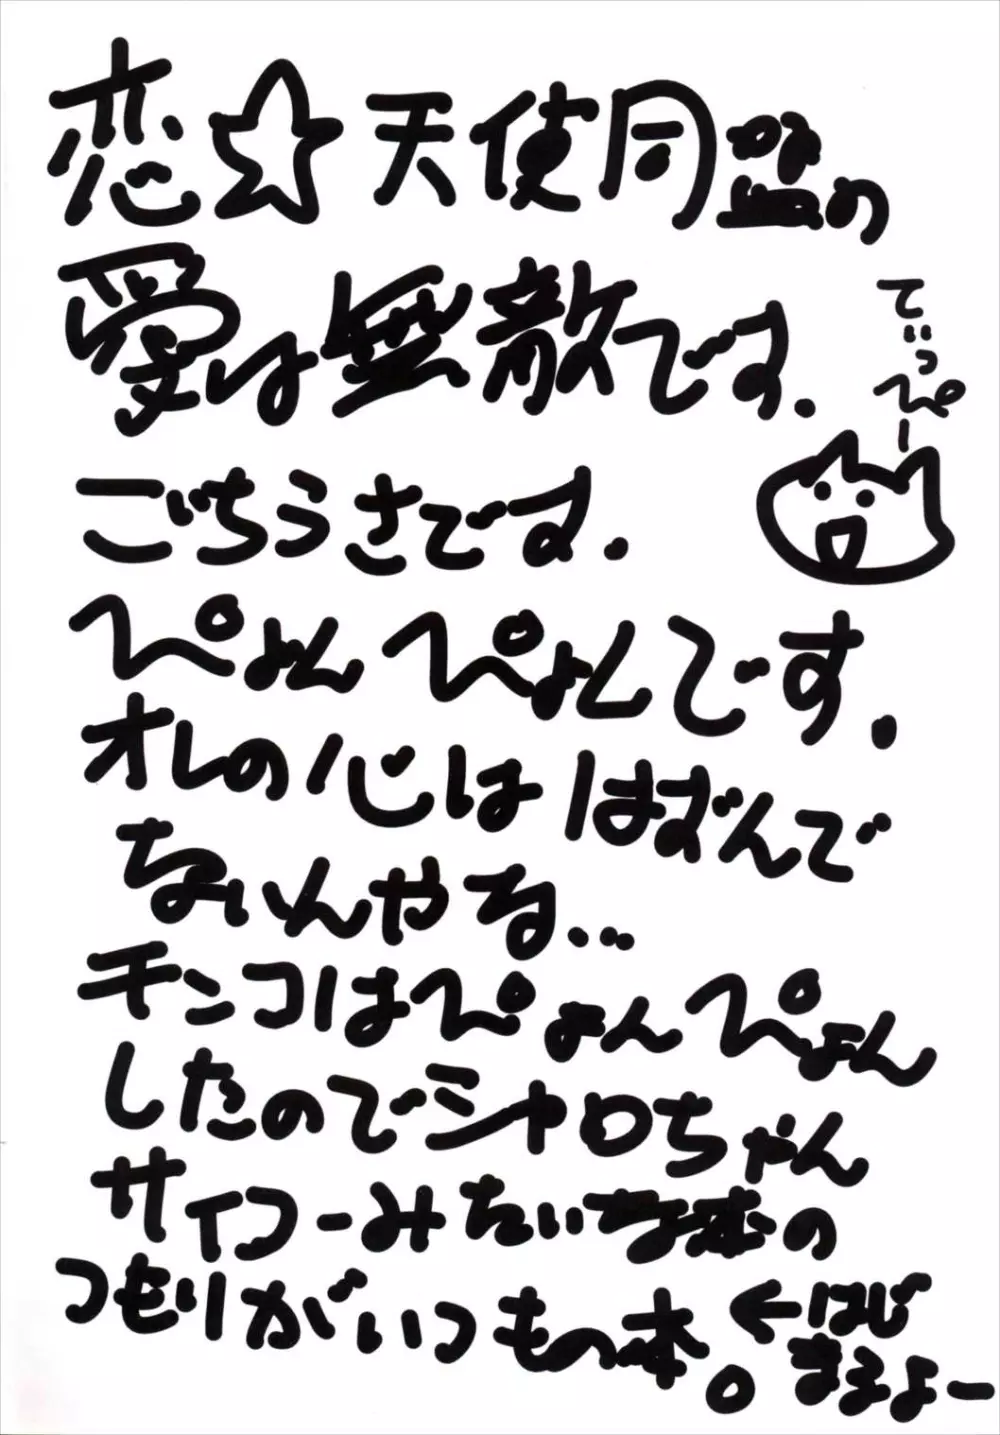 恋☆天使同盟の
愛は無敵です.
てぃっぴー
ごちうさです.
ぴょんぴょんです.
オレの心ははずんで
ないんやな…
チンコはぴょんぴょん
したのでシャロちゃん
サイコーみたいな本の
つもりがいつもの本。←はじ
まるよー